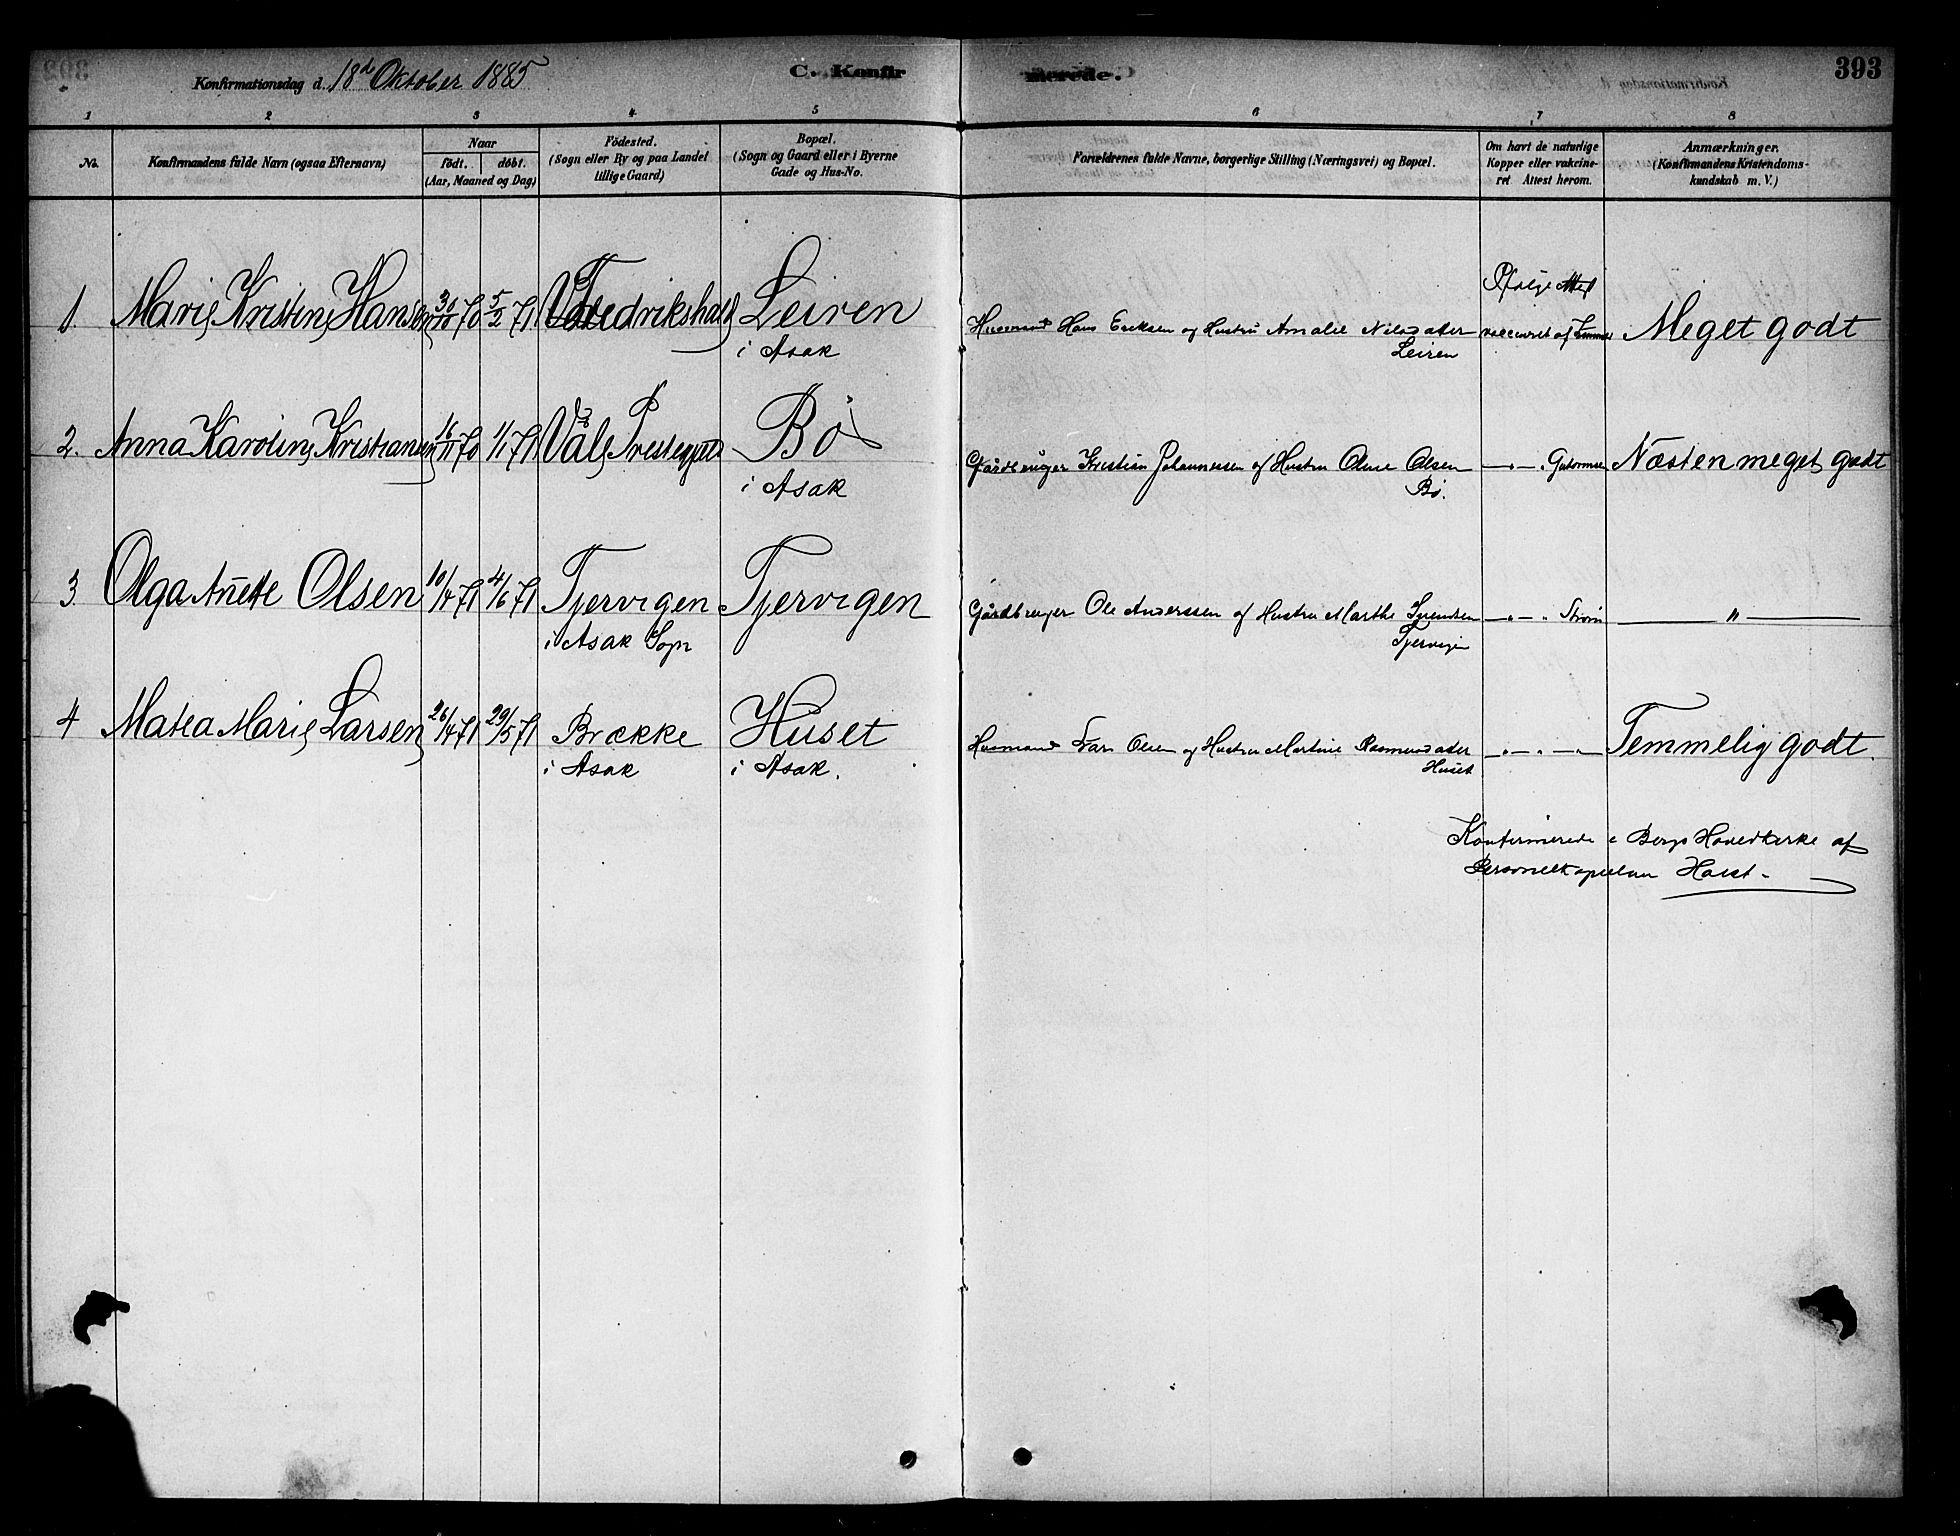 Konfirmationsdag d. 18d Oktober 1885 C. Konfirmerede. 393
1 2 3 4 5 6 7 8
No. Konfirmandens fulde Navn (ogsaa Efternavn) Naar født. døbt. (Aar, Maaned og Dag) Fødested. (Sogn eller By og paa Landet tillige Gaard) Bopæl. (Sogn og Gaard eller i Byerne Gade og Hus-No. Forældrenes fulde Navne, borgerlige Stilling (Næringsvei) og Bopæl. Om havt de naturlige Kopper eller vakcineret Attest herom. Anmærkninger. (Konfirmandens Kristendomskundskab m. V.)
Ifølge Att.
1. Marie Kristine Hansen 30/10 70 5/2 71 Fredrikshald Leiren Husmand Hans Eriksen og Hustru Amalie Nilsdatter vaccineret af Meget godt
i Asak Leiren
2. Anna Karoline Kristiansen 16/11 70 1/1 71 Våle Prestegjeld Bø Gårdbruger Kristian Johannessen og Hustru Oline Olsen — " — " Gutormsen Næsten meget godt
i Asak Bø.
3. Olga Anette Olsen 10/4 71 4/6 71 Tjervigen Tjervigen Gårdbruger Ole Anderssen og Hustru Marthe Syrendsen — " — " Strøm — " —
i Asak Sogn Tjervigen
4 Matea Marie Larsen 26/4 71 29/5 71 Brække Huset Husmand Lars Olsen og Hustru Martine Rasmusdatter " — " — " Temmelig godt.
i Asak i Asak. Huset
Konfirmerede i Bergs Hovedkirke af
Personelkapellan Holst.